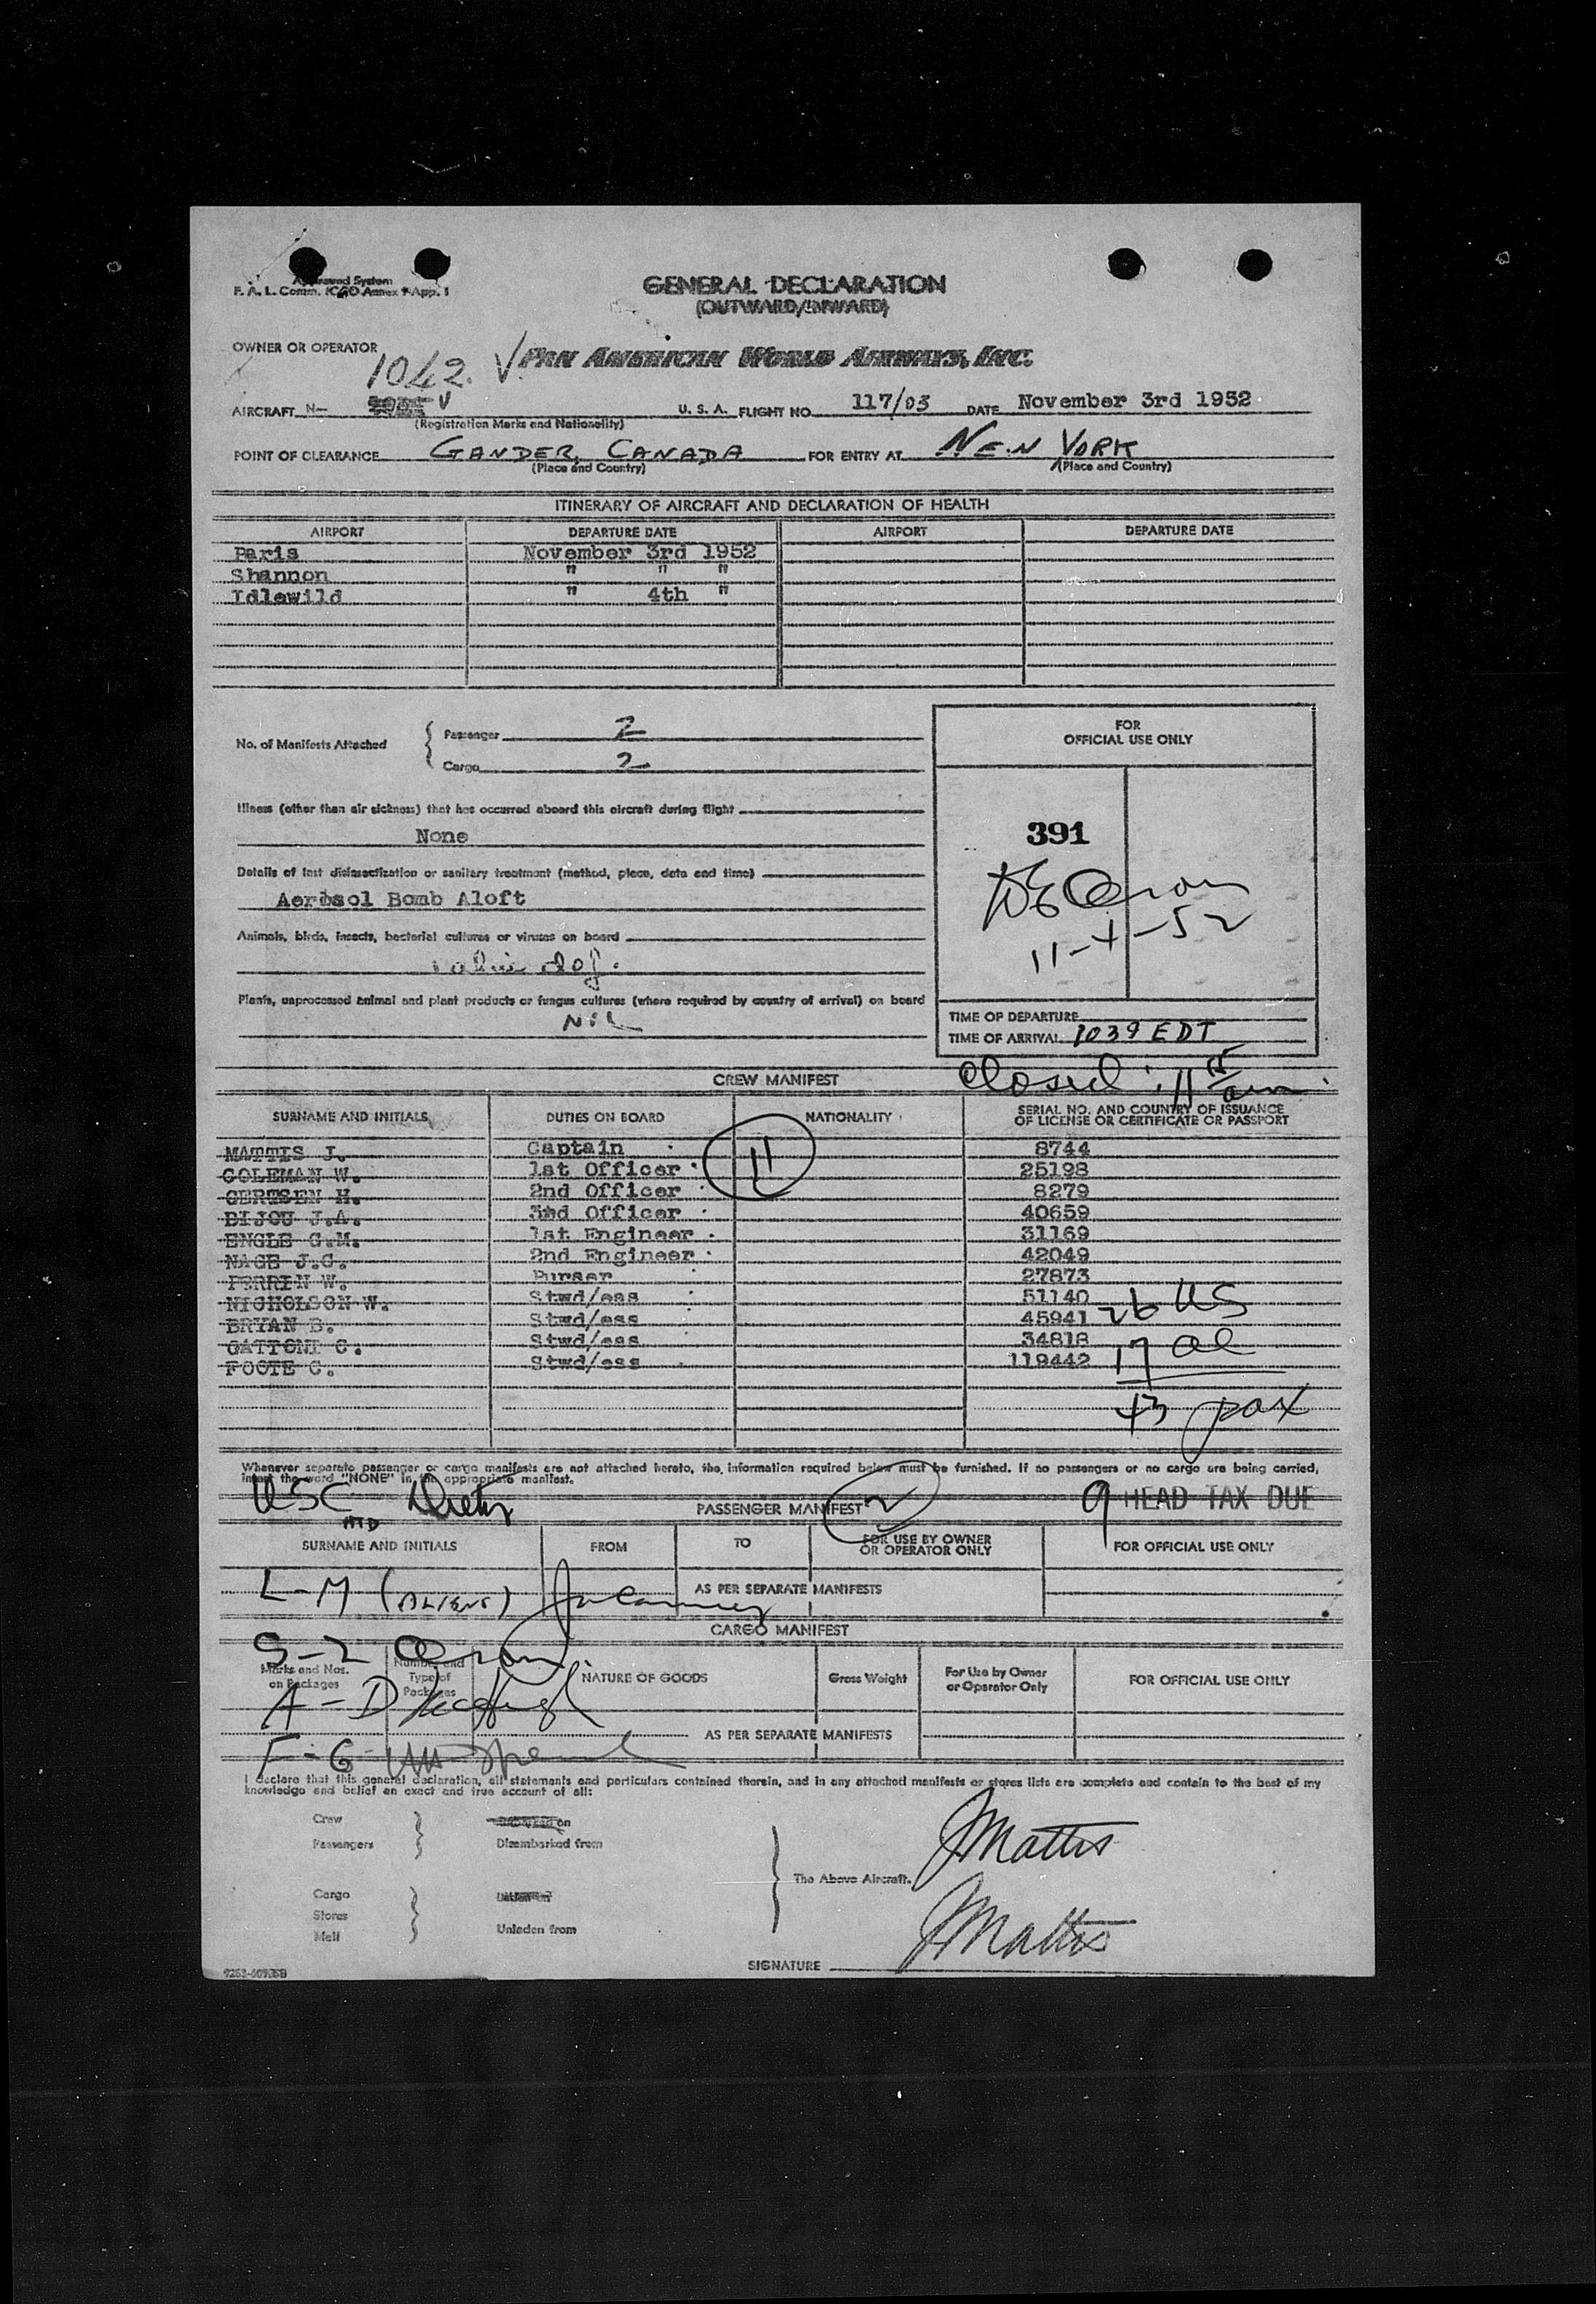 Approved System
F. A. L. Comm. ICAO Annex 9 App. 1
GENERAL DECLARATION
(OUTWARD/INWARD)
OWNER OR OPERATOR
1042 V PAN AMERICAN WORLD AIRWAYS, INC.
AIRCRAFT N- V U. S. A. FLIGHT NO. 117/03 DATE November 3rd 1952
(Registration Marks and Nationality)
POINT OF CLEARANCE GANDER, CANADA FOR ENTRY AT NEW YORK
(Place and Country) (Place and Country)
ITINERARY OF AIRCRAFT AND DECLARATION OF HEALTH
AIRPORT DEPARTURE DATE AIRPORT DEPARTURE DATE
Paris November 3rd 1952
Shannon " " "
Idlewild " 4th "
No. of Manifests Attached { Passenger 2
Cargo 2
FOR
OFFICIAL USE ONLY
Illness (other than air sickness) that has occurred aboard this aircraft during flight
None
391
Details of last disinsectization or sanitary treatment (method, place, date and time)
Aerosol Bomb Aloft
11-4-52
Animals, birds, insects, bacterial cultures or viruses on board
dog.
Plants, unprocessed animal and plant products or fungus cultures (where required by country of arrival) on board
Nil
TIME OF DEPARTURE
TIME OF ARRIVAL 1039 EDT
CREW MANIFEST closed: 11 15 am.
SURNAME AND INITIALS DUTIES ON BOARD NATIONALITY SERIAL NO. AND COUNTRY OF ISSUANCE
OF LICENSE OR CERTIFICATE OR PASSPORT
11
MATTIS J. Captain 8744
COLEMAN W. 1st Officer 25198
GERTSEN H. 2nd Officer 8279
BIJOU J.A. 3rd Officer 40659
ENGLE G.M. 1st Engineer 31169
NAGE J.G. 2nd Engineer 42049
PERRIN W. Purser 27873
NICHOLSON W. Stwd/ess 51140
BRYAN B. Stwd/ess 45941 26 US
GATTONI C. Stwd/ess 34818
FOOTE C. Stwd/ess 119442 17 al
43 pax
Whenever separate passenger or cargo manifests are not attached hereto, the information required below must be furnished. If no passengers or no cargo are being carried,
insert the word "NONE" in the appropriate manifest.
USC
PASSENGER MANIFEST 2
9 HEAD TAX DUE
SURNAME AND INITIALS FROM TO FOR USE BY OWNER
OR OPERATOR ONLY FOR OFFICIAL USE ONLY
L-M (ALIENS)
AS PER SEPARATE MANIFESTS
CARGO MANIFEST
S-Z
Marks and Nos.
on Packages Number and
Type of
Packages NATURE OF GOODS Gross Weight For Use by Owner
or Operator Only FOR OFFICIAL USE ONLY
A-D
AS PER SEPARATE MANIFESTS
F-G
I declare that this general declaration, all statements and particulars contained therein, and in any attached manifests or stores lists are complete and contain to the best of my
knowledge and belief an exact and true account of all:
Crew Embarked on
Passengers Disembarked from
The Above Aircraft. J Mattis
Cargo Laden on
Stores
Mail Unladen from
SIGNATURE J Mattis